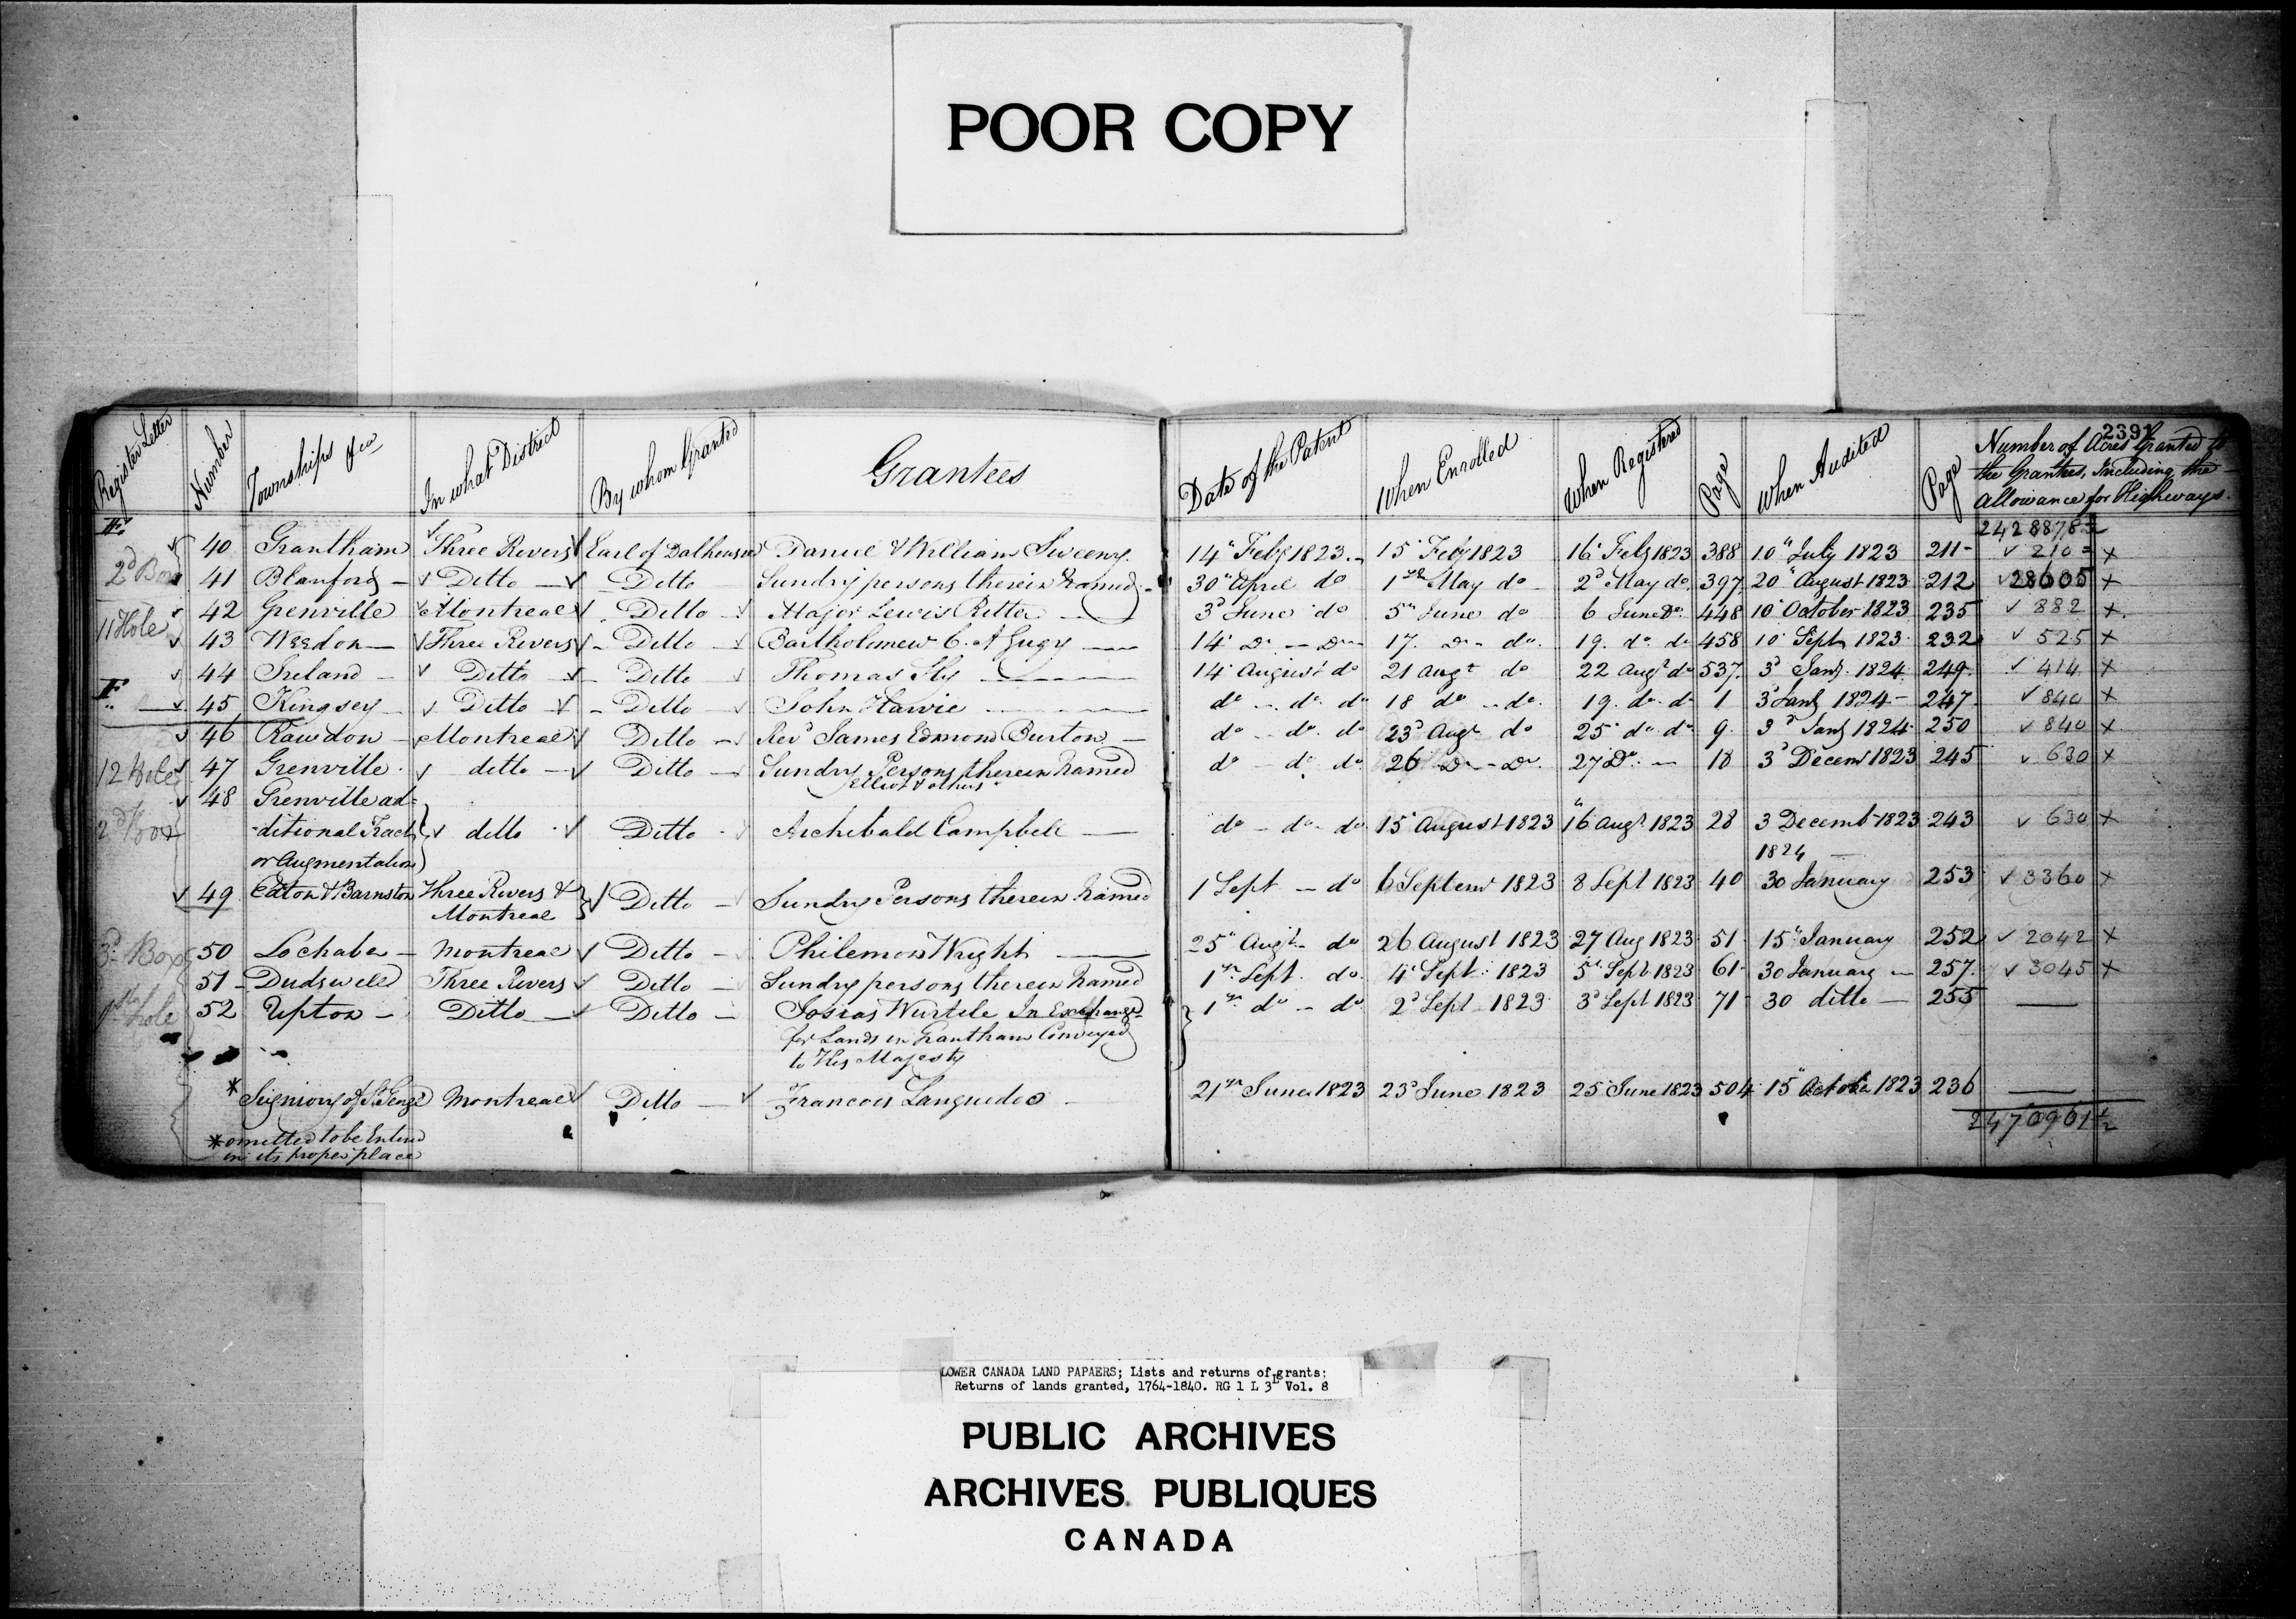 POOR COPY
2391
Register Letter Number Townships &ca In what District By whom Granted Grantees Date of the Patent When Enrolled When Registered Page When Audited Page Number of Acres Granted to
the Grantees, Including the
allowance for Highways.
F. 2428878½
40 Grantham Three Rivers Earl of Dalhousie Daniel & William Sweeny 14" Feby 1823 15 Feby 1823 16 Feby 1823 388 10" July 1823 211 210 x
2d Box 41 Blanford Ditto Ditto Sundry persons therein named 30" April do 1st May do 2d May do 397 20" August 1823 212 28605 x
42 Grenville Montreal Ditto Major Lewis Ritter 3d June do 5th June do 6 June Do 448 10 October 1823 235 882 x
11 Hole 43 Weedon Three Rivers Ditto Bartholomew C. A Gugy 14 Do Do 17. Do do 19. do. do 458 10 Sept 1823 232 525 x
44 Ireland Ditto Ditto Thomas Sly 14 August do 21 augt do 22 augt do 537. 3d Jany. 1824 249 414 x
F. 45 Kingsey Ditto Ditto John Hawie do do do 18 do do 19. do. do 1 3d Jany 1824 247 840 x
46 Rawdon Montreal Ditto Revd James Edmond Burton do do. do 23d Augt do 25 do do 9. 3d Jany 1824 250 840 x
12 Hole 47 Grenville ditto Ditto Sundry Persons therein named do do do 26 Do Do 27 Do 18 3d Decem 1823 245 630 x
Elliot & others
48 Grenville ad=
2d Box -ditional Tract ditto Ditto Archibald Campbell do do do 15 August 1823 16 augt 1823 28 3 Decemb 1823 243 630 x
or Augmentation 1824
49 Eaton & Barnston Three Rivers & Ditto Sundry Persons therein named 1 Sept do 6 Septem 1823 8 Sept 1823 40 30 January 253 3360 x
Montreal
3d Box 50 Lochaber Montreal Ditto Philemon Wright 25" Augt do 26 August 1823 27 Aug 1823 51 15" January 252 2042 x
51 Dudswell Three Rivers Ditto Sundry persons therein named 1st Sept. do. 4 Sept. 1823 5th Sept 1823 61 30 January 257. 3045 x
1st hole 52 Upton Ditto Ditto Josias Wurtele In Exchange 1st do do 2d Sept 1823 3d Sept 1823 71 30 ditto 255
for Lands in Grantham Conveyed
to His Majesty
* Seigniory of St Georges Montreal Ditto Francois Languedoc 21st June 1823 23d June 1823 25 June 1823 504 15" October 1823 236
2470961½
* omitted to be Entered
in its proper place
LOWER CANADA LAND PAPAERS; Lists and returns of grants:
Returns of lands granted, 1764-1840. RG 1 L 3L Vol. 8
PUBLIC ARCHIVES
ARCHIVES PUBLIQUES
CANADA